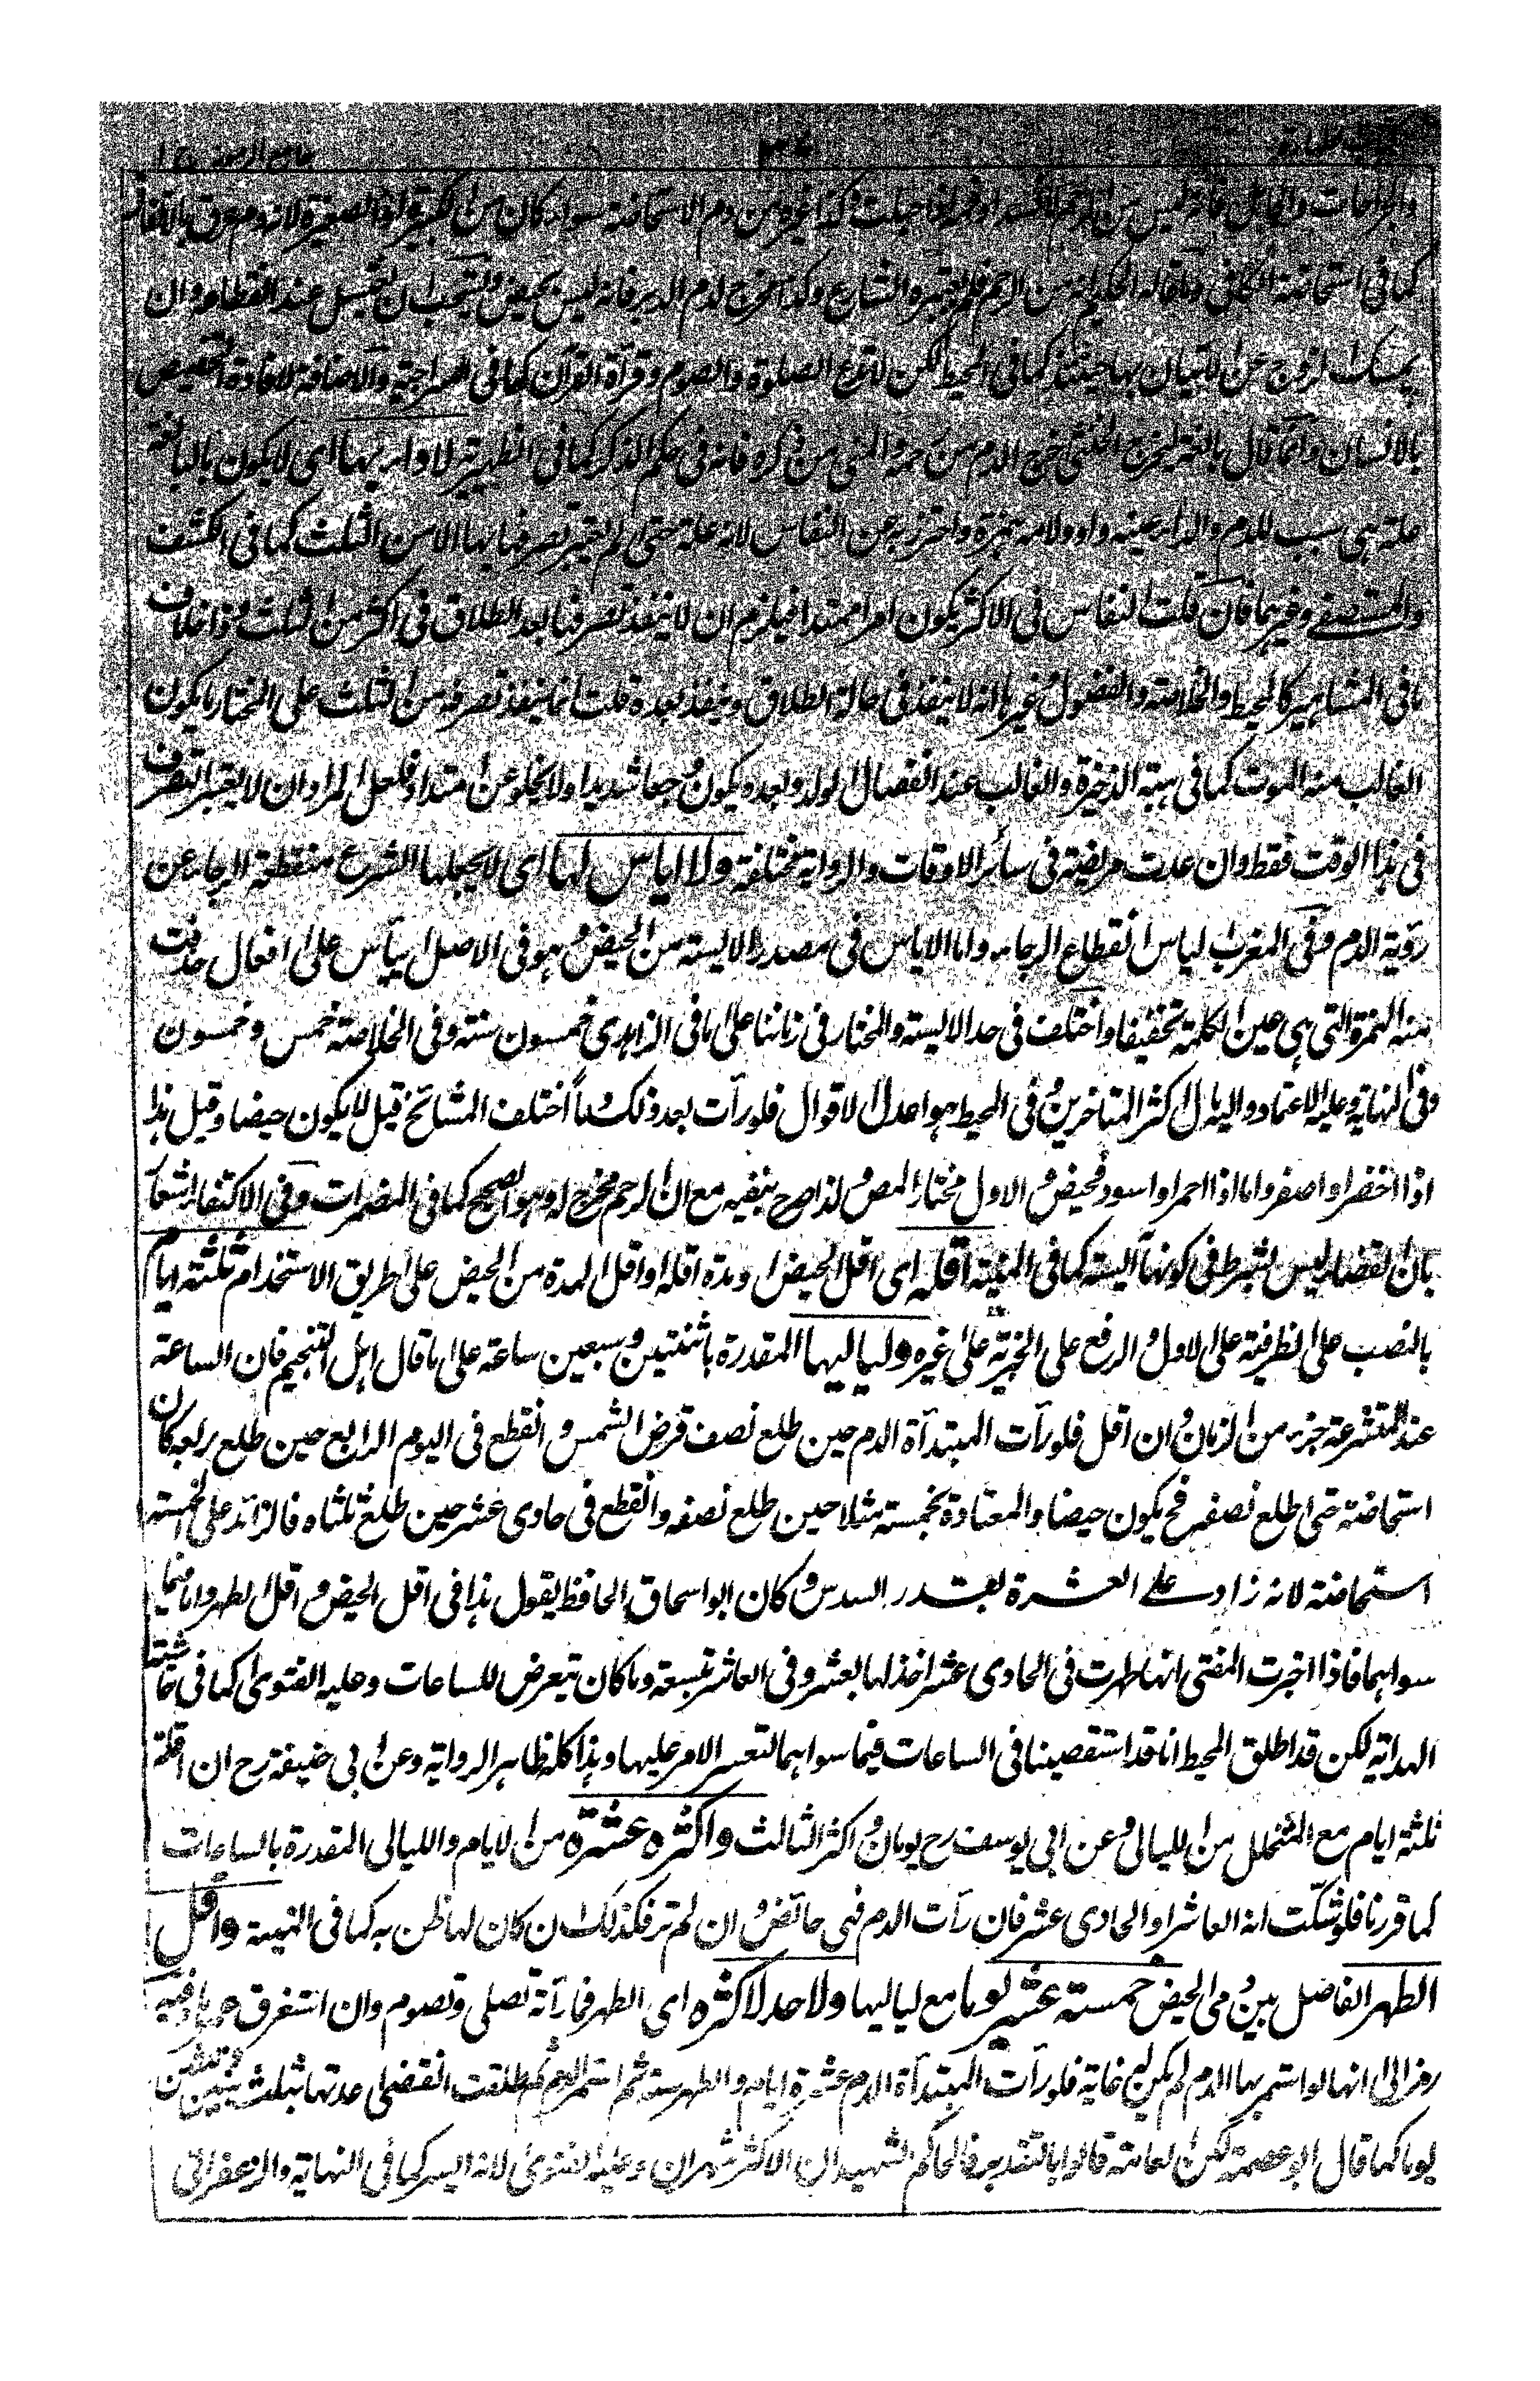 كما فى استحاضة الكافى وما قاله الحكيم انه من الرحم فلم يعتبره الشارع وكذا مخرج لدم الدبر فانه ليس بحيض ويستحب ان تغتسل عند انقطاعه وان
يمسك الزوج عن الاتيان بها حينئذ كما فى المحيط لكن لا تدع الصلوة والصوم وقرآة القرآن كما فى السراجية والاضافة لافادة التخصيص
بالانسان وانما قال بالغة ليخرج الخنثى خرج الدم من فرجه والمنى من ذكره فانه فى حكم الذكر كما فى الظهيرية لا داء بها اى لا يكون بالبالغة
علة هى سبب للدم والداء عينه واو ولامه همزة واحترز به عن النفاس لانه علة حتى لم يعتبر تصرفها الا من الثلث كما فى الكشف
والمستصفى وغيرهما فان قلت النفاس فى الاكثر يكون امرا ممتدا فيلزم ان لا ينفذ تصرفها بعد الطلاق فى اكثر من الثلث وذا خلاف
ما فى المشاهير كالمحيط والخلاصة والفصول وغيرها انه لا ينفذ فى حالة الطلاق وينفذ بعده قلت انما ينفذ تصرفه من الثلث على المختار ما يكون
الغالب منه الموت كما فى هبة الذخيرة والغالب عند انفصال الولد وبعده يكون وجعا شديدا ولا يخلو عن امتداد فلعل المراد ان لا يعتبر التصرف
فى هذا الوقت فقط وان عدت مريضة فى سائر الاوقات والرواية مختلفة ولا اياس لها اى لا يجعلها الشرع منقطعة الرجاء عن
رؤية الدم وفى المغرب الياس انقطاع الرجاء واما الاياس فى مصدر الآيسة من الحيض وهو فى الاصل ايياس على افعال حذفت
منه الهمزة التى هى عين الكلمة تخفيفا واختلف فى حد الآيسة والمختار فى زماننا على ما فى الزاهدى خمسون سنة وفى الخلاصة خمس وخمسون
وفى النهاية وعليه الاعتماد واليه مال اكثر المتاخرين وفى المحيط هو اعدل الاقوال فلو رأت بعد ذلك دماً اختلف المشائخ قيل لا يكون حيضا وقيل هذا
اذا اخضر او اصفر واما اذا احمر او اسود فحيض والاول مختار المص ولذا صرح بنفيه مع ان الرحم مخرج له وهو الصحيح كما فى المضمرات وفى الاكتفاء اشعار
بان القضاء ليس بشرط فى كونها آئسة كما فى المنية اقله اى اقل الحيض او مدة اقله او اقل المدة من الحيض على طريق الاستخدام ثلثة ايام
بالنصب على الظرفية على الاول والرفع على الخبرية على غيره ولياليها المقدرة باثنتين وسبعين ساعة على ما قال اهل التنجيم فان الساعة
عند المتشرعة جزء من الزمان وان اقل فلو رأت المبتدأة الدم حين طلع نصف قرض الشمس وانقطع فى اليوم الرابع حين طلع ربعه كان
استحاضة حتى اطلع نصفه فح يكون حيضا والمعتادة بخمسة مثلا حين طلع نصفه وانقطع فى حادى عشر حين طلع ثلثاه فالزائد على الخمسة
استحاضة لانه زاد على العشرة بقدر السدس وكان ابو اسحاق الحافظ يقول هذا فى اقل الحيض واقل الطهر واما فيما
سواهما فاذا اخبرت المفتى انها طهرت فى الحادى عشر اخذ لها بعشر وفى العاشر بتسعة وما كان يتعرض للساعات وعليه الفتوى كما فى حاشية
الهداية لكن قد اطلق المحيط انا قد استقصينا فى الساعات فيما سواهما لتعسر الامر عليها وهذا كله ظاهر الرواية وعن ابى حنيفة رح ان اقله
ثلثة ايام مع المتخلل من الليالى وعن ابى يوسف رح يومان واكثر الثالث واكثره عشرة من الايام والليالى المقدرة بالساعات
كما قررنا فلو شكت انه العاشر او الحادى عشر فان رأت الدم فهى حائض وان لم تر فكذلك ان كان لها ظن به كما فى المنية واقل
الطهر الفاصل بين دمى الحيض خمسة عشر يوما مع لياليها ولا حد لاكثره اى الطهر فما رأته تصلى وتصوم وان استغرق عمرها وفيه
رمز الى انها لو استمر بها الدم لم يكن له غاية فلو رأت المبتدأة الدم عشرة ايام والطهر ستة ثم استمر الدم ثم طلقت انقضى عدتها بثلث سنين وثلثين
يوما كما قال ابو عصمة لكن العامة قالوا بالتقدير فالحاكم الشهيد ان الاكثر شهران وعليه الفتوى لانه ايسر كما فى النهاية والزعفرانى